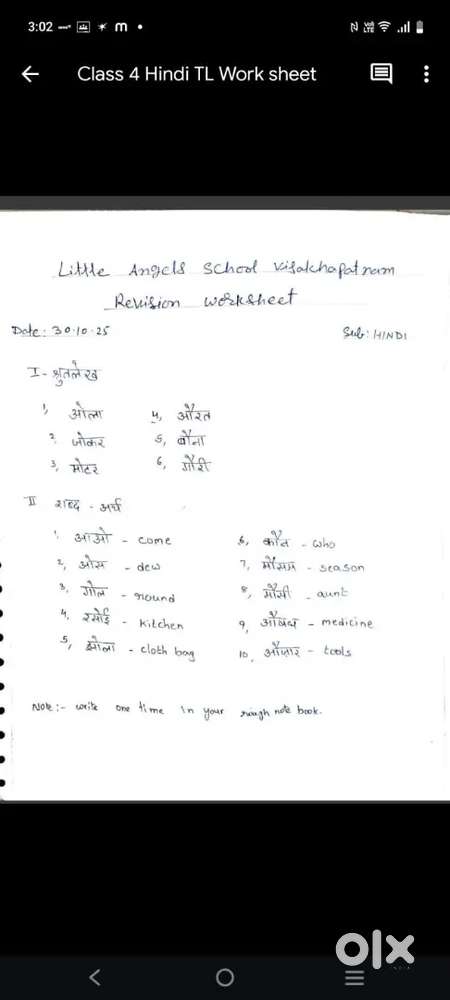 3:02
Class 4 Hindi TL Work sheet
Little Angels School Visakhapatnam
Revision Worksheet
Date: 30.10.25 Sub: HINDI
I - श्रुतलेख
1, ओला 4, औरत
2. जोकर 5, बौना
3, मोटर 6, गौरी
II शब्द - अर्थ
1. आओ - come 6, कौन - who
2, ओस - dew 7, मौसम - season
3. गोल - round 8, मौसी - aunt
4. रसोई - kitchen 9, औषध - medicine
5, झोला - cloth bag 10, औज़ार - tools
Note:- write one time in your rough note book.
olx